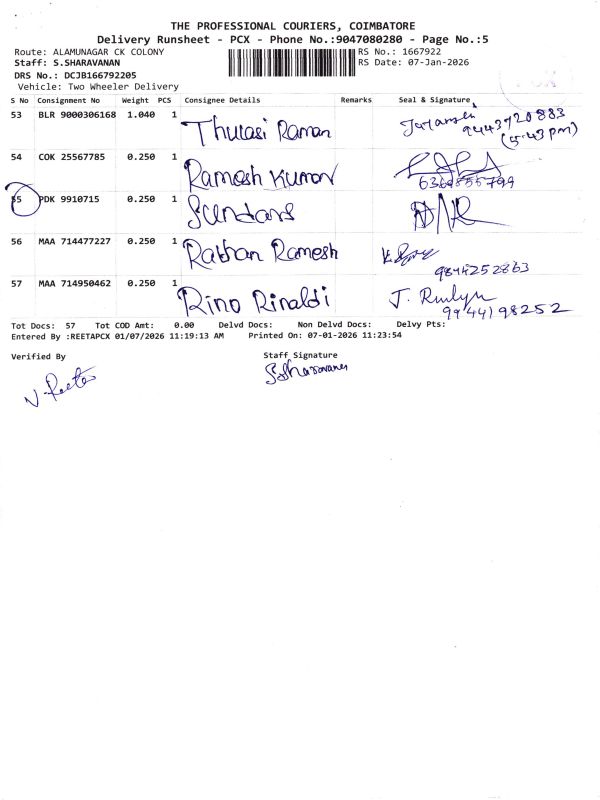 THE PROFESSIONAL COURIERS, COIMBATORE
Delivery Runsheet - PCX - Phone No.:9047080280 - Page No.:5
Route: ALAMUNAGAR CK COLONY RS No.: 1667922
Staff: S.SHARAVANAN RS Date: 07-Jan-2026
DRS No.: DCJB166792205
Vehicle: Two Wheeler Delivery
S No Consignment No Weight PCS Consignee Details Remarks Seal & Signature
53 BLR 9000306168 1.040 1 Thulasi Raman 9443720883
(5:43 pm)
54 COK 25567785 0.250 1 Ramesh Kumar
6369855799
55 PDK 9910715 0.250 1
56 MAA 714477227 0.250 1 Ramesh
9844252863
57 MAA 714950462 0.250 1 Rino Rinaldi J.
9944198252
Tot Docs: 57 Tot COD Amt: 0.00 Delvd Docs: Non Delvd Docs: Delvy Pts:
Entered By :REETAPCX 01/07/2026 11:19:13 AM Printed On: 07-01-2026 11:23:54
Verified By Staff Signature
N. Reeta S.Sharavanan